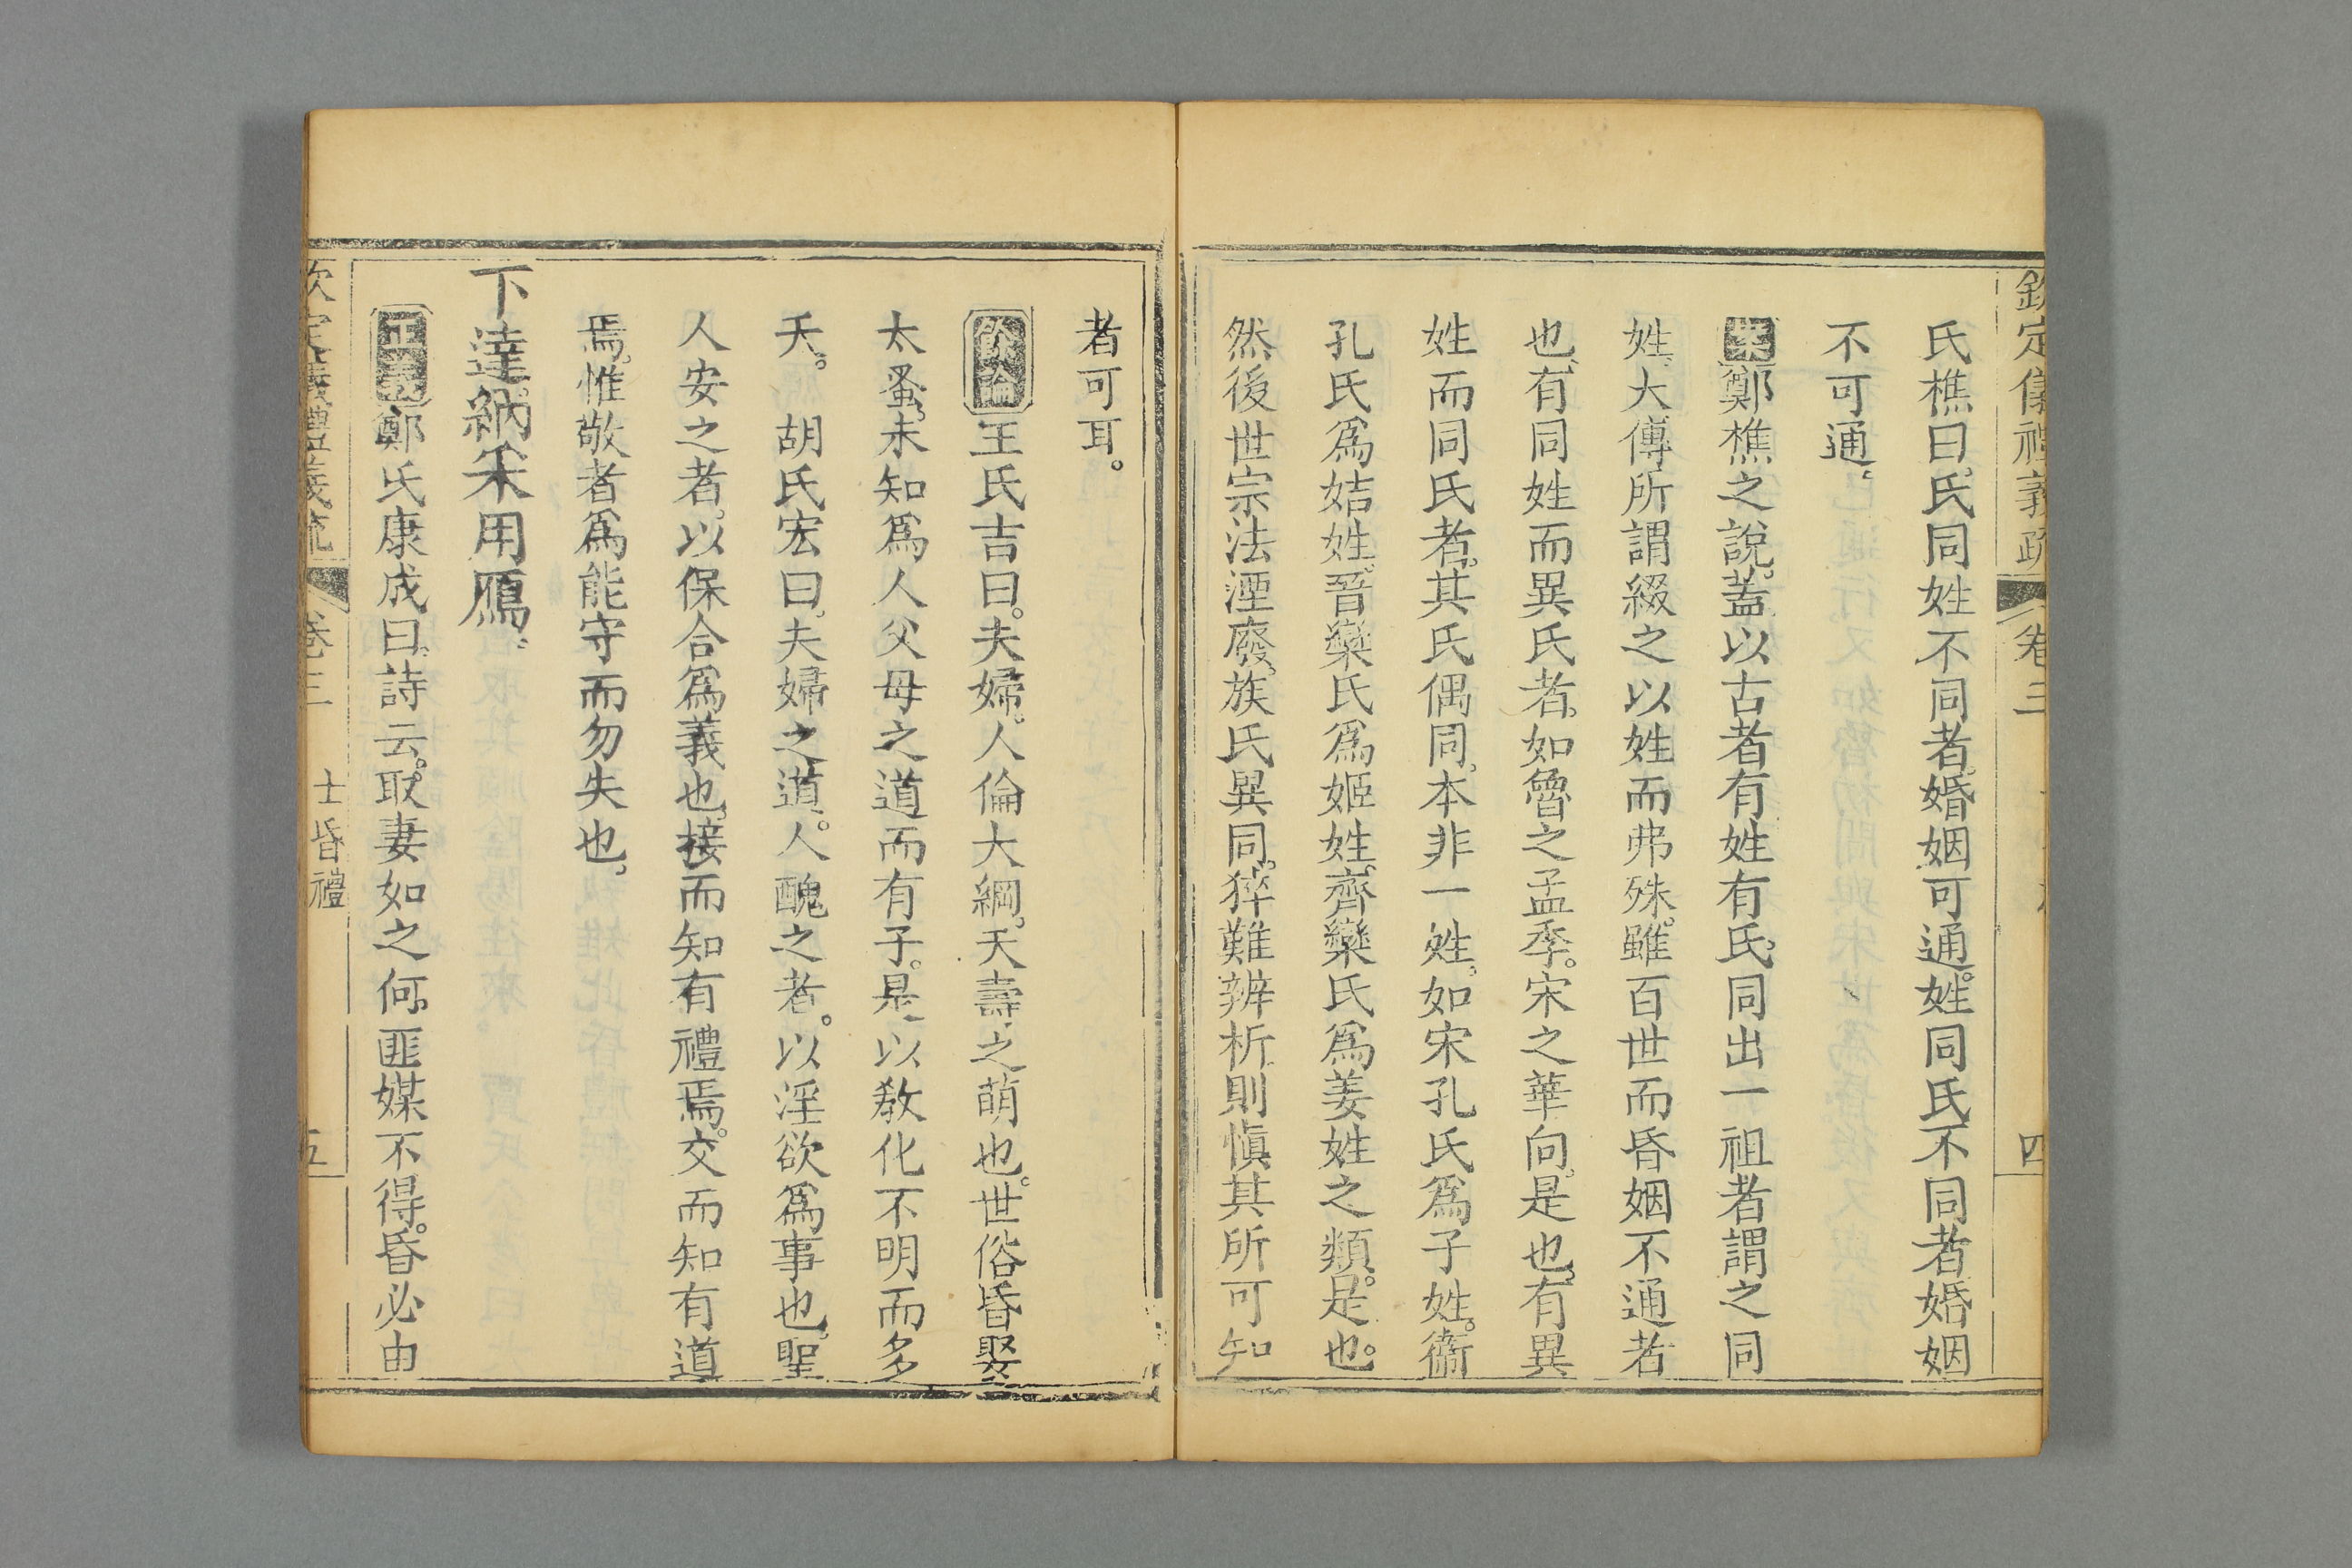 欽定儀禮義疏 卷三 四
氏樵曰。氏同姓不同者。婚姻可通。姓同氏不同者婚姻
不可通。
案鄭樵之說。蓋以古者有姓有氏。同出一祖者謂之同
姓。大傳所謂綴之以姓而弗殊。雖百世而昏姻不通者
也。有同姓而異氏者。如魯之孟季。宋之華向。是也。有異
姓而同氏者。其氏偶同。本非一姓。如宋孔氏爲子姓。衞
孔氏爲姞姓。晉欒氏爲姬姓。齊欒氏爲姜姓之類。是也。
然後世宗法湮廢。族氏異同。猝難辨析。則愼其所可知
者可耳。
餘論王氏吉曰。夫婦。人倫大綱。夭壽之萌也。世俗昏娶
太蚤。未知爲人父母之道而有子。是以敎化不明而多
夭。 胡氏宏曰。夫婦之道。人醜之者。以淫欲爲事也。聖
人安之者。以保合爲義也。接而知有禮焉。交而知有道
焉。惟敬者爲能守而勿失也。
下達。納采用鴈。
正義鄭氏康成曰。詩云。取妻如之何。匪媒不得。昏必由
欽定儀禮義疏 卷三 士昏禮 五